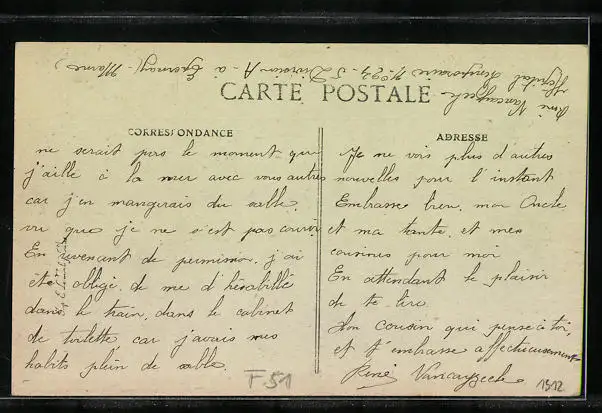 René Vancuyseck
Hôpital Temporaire Nº 23. 5 Division A - à Epernay - Marne)
CARTE POSTALE
CORRESPONDANCE
ne serait pas le moment que
j'aille à la mer avec vous autres
car j'en mangerais du sable,
vu que je ne s'est pas courir
En revenant de permission, j'ai
été obligé, de me déshabillé
dans le train, dans le cabinet
de toilette, car j'avais mes
habits plein de sable.
ADRESSE
Je ne vois plus d'autres
nouvelles pour l'instant
Embrasse bien, mon Oncle
et ma tante, et mes
cousines pour moi
En attendant le plaisir
de te lire.
Ton cousin qui pense à toi,
et t'embrasse affectueusement
René Vancuyseck
F.51
1512